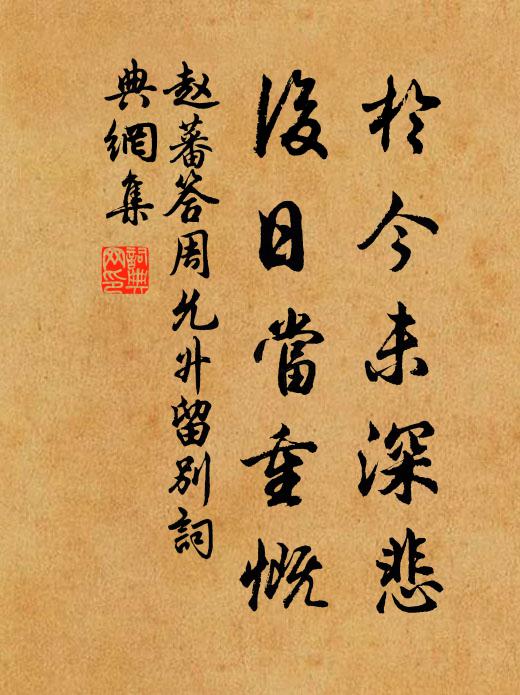 於今未深悲
後日當重慨
赵蕃答周允升留別詞
典網集
詞典网印